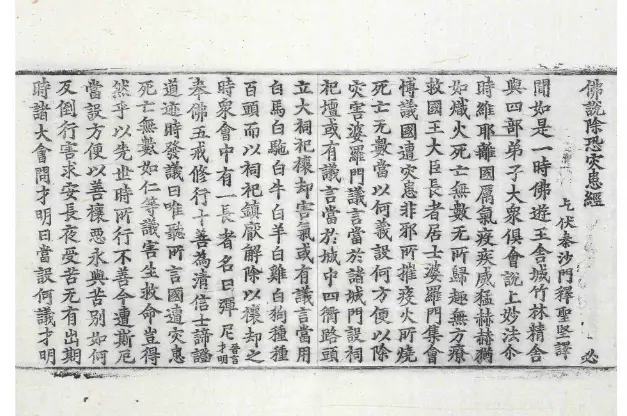 佛說除恐灾患經 必
乞伏秦沙門釋聖堅譯
聞如是一時佛遊王舍城竹林精舍
與四部弟子大衆俱會說上妙法尒
時維耶離國厲氣疫疾威猛赫赫猶
如熾火死亡無數無所歸趣無方療
救國王大臣長者居士婆羅門集會
博議國遭灾患非邪所摧疫火所燒
死亡无數當以何議設何方便以除
灾害婆羅門議言當於諸城門設祠
祀壇或有議言當於城中四衢路頭
立大祠祀禳却害氣或有議言當用
白馬白駞白牛白羊白雞白狗種種
百頭而以祠祀鎮厭解除以禳却之
時衆會中有一長者名曰彈尼晉言才明
奉佛五戒修行十善為清信士諦
道迹時發議曰唯聽所言國遭灾患
死亡無數如仁等議害生救命豈得
然乎以先世時所行不善今遭斯厄
當設方便以善禳惡永與苦別如何
反倒行害求安長夜受苦无有出期
時諸大會問才明曰當設何議才明